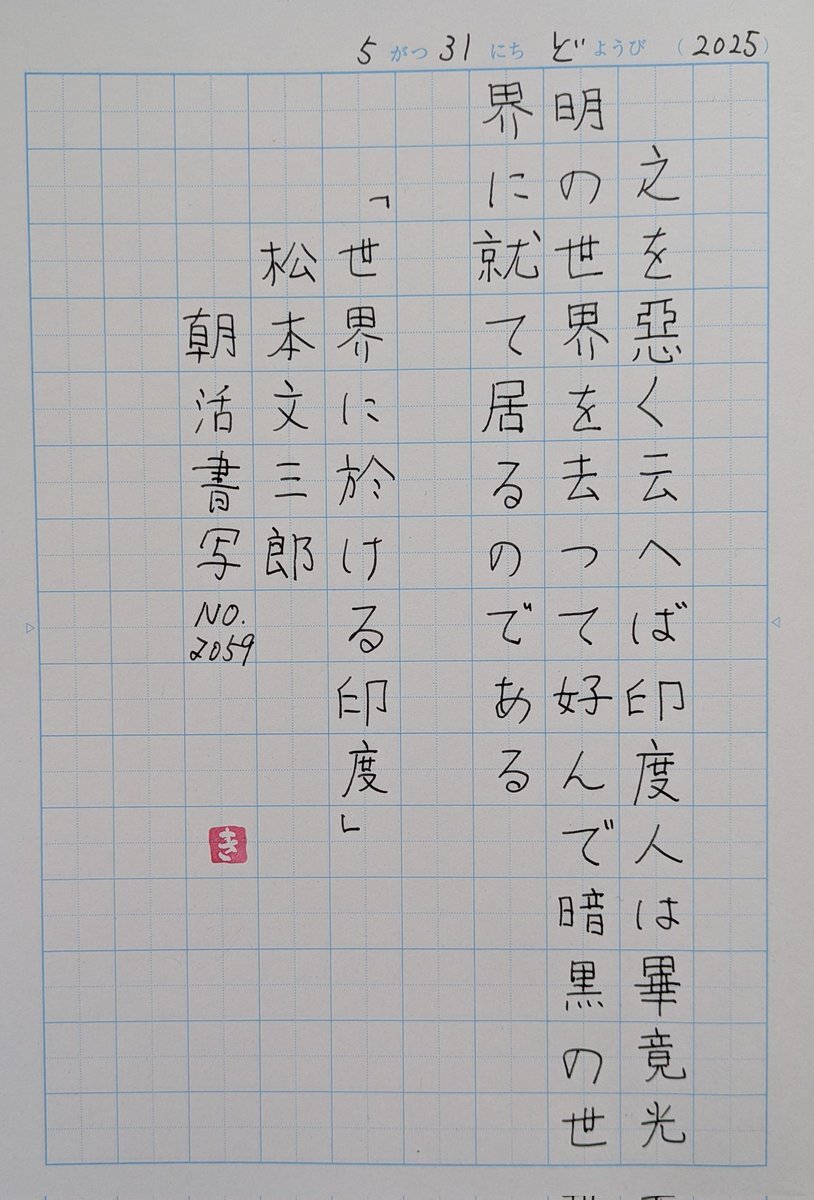 5がつ31にちどようび（2025）
之を惡く云へば印度人は畢竟光
明の世界を去つて好んで暗黒の世
界に就て居るのである
「世界に於ける印度」
松本文三郎
朝活書写NO.2059
き